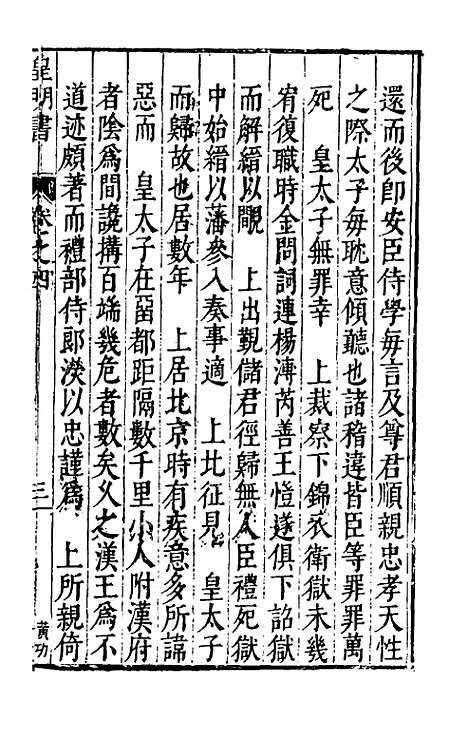 還而後卽安臣侍學每言及尊君順親忠孝天性
之際太子每耽意傾聽也諸稽違皆臣等罪罪萬
死　皇太子無罪幸　上裁察下錦衣衛獄未幾
宥復職時金問詞連楊溥芮善王愷遂俱下詔獄
而解縉以覵　上出覲儲君徑歸無人臣禮死獄
中始縉以藩參入奏事適　上北征見　皇太子
而歸故也居數年　上居北京時有疾意多所諱
惡而　皇太子在留都距隔數千里小人附漢府
者陰爲間讒搆百端幾危者數矣乆之漢王爲不
道迹頗著而禮部侍郞濙以忠謹爲　上所親倚
皇明書
卷之四
三
黃功